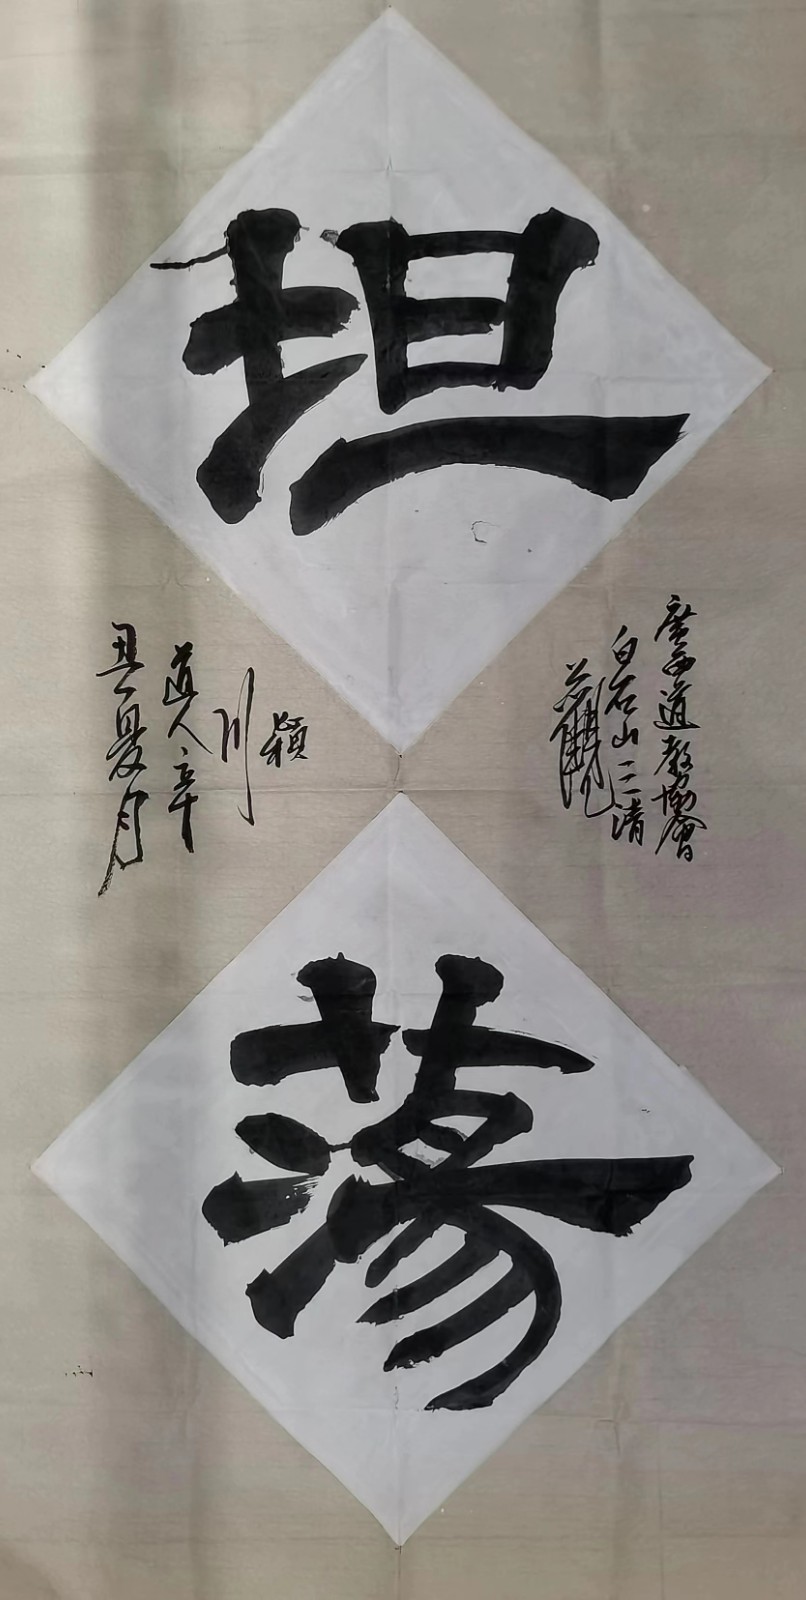 坦
蕩
廣西道教協會
白石山三清
觀
穎
川
道人辛
丑夏月